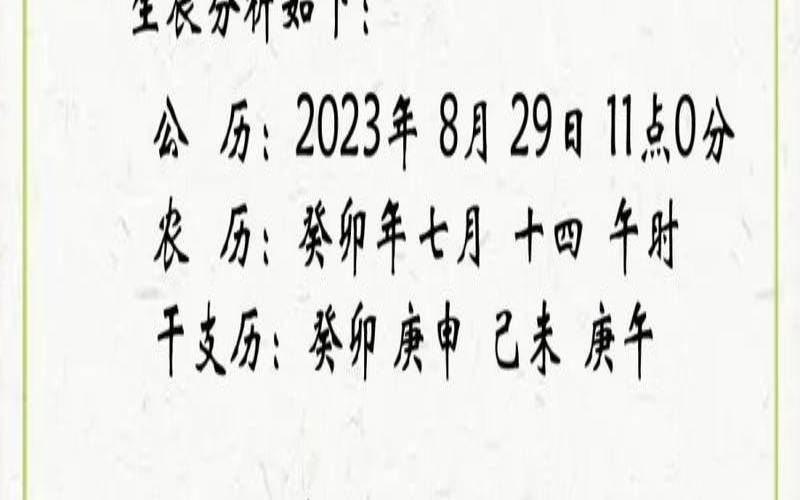 生辰分析如下：
公 历：2023年 8月 29日 11点0分
农 历：癸卯年七月 十四 午时
干支历：癸卯 庚申 己未 庚午